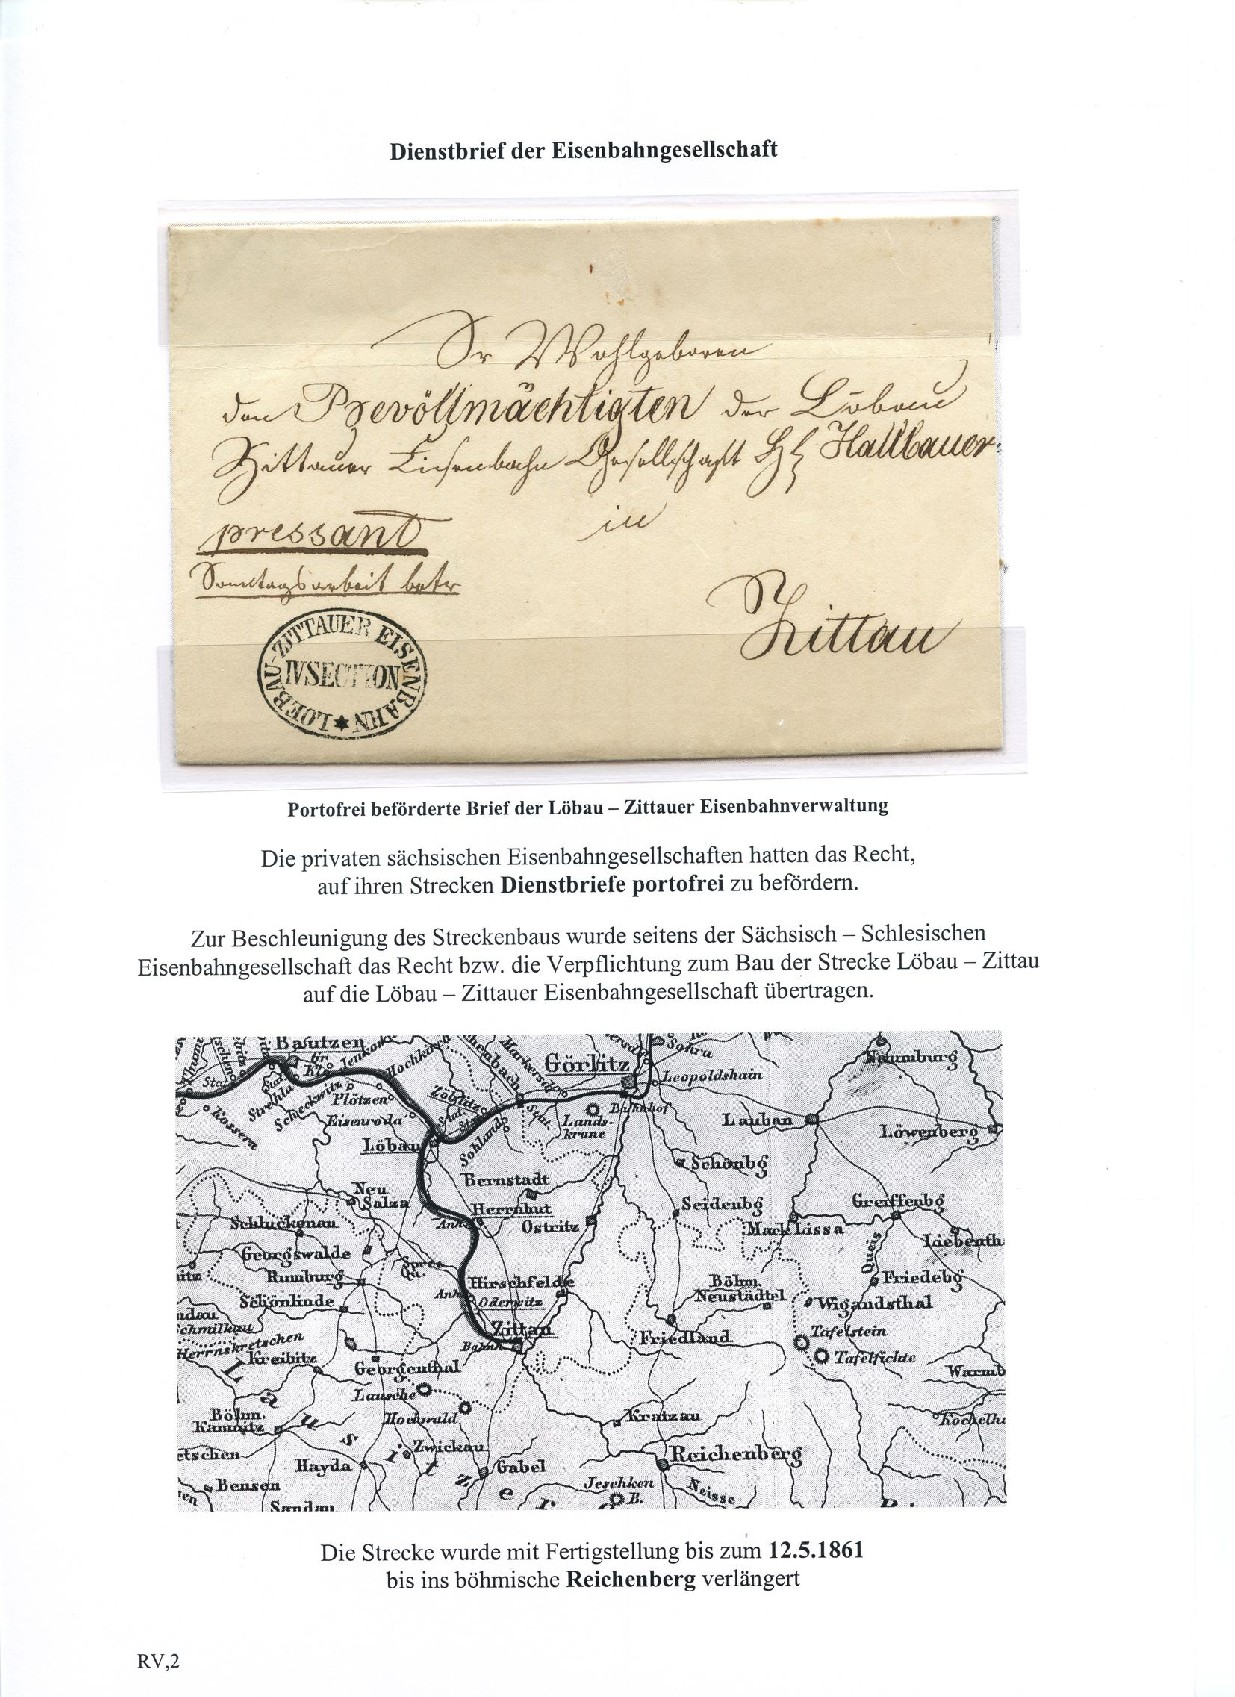 Dienstbrief der Eisenbahngesellschaft
Sr Wohlgeboren
den Bevöllmächtigten der Löbau
Zittauer Eisenbahn Gesellschaft Hℓ Hallbauer
in
pressant
Sonntagsarbeit betr
Zittau
LOEBAU-ZITTAUER EISENBAHN
IV SECTION
Portofrei beförderte Brief der Löbau – Zittauer Eisenbahnverwaltung
Die privaten sächsischen Eisenbahngesellschaften hatten das Recht,
auf ihren Strecken Dienstbriefe portofrei zu befördern.
Zur Beschleunigung des Streckenbaus wurde seitens der Sächsisch – Schlesischen
Eisenbahngesellschaft das Recht bzw. die Verpflichtung zum Bau der Strecke Löbau – Zittau
auf die Löbau – Zittauer Eisenbahngesellschaft übertragen.
Bautzen
Görlitz
Sohra
Leopoldshain
Plötzen
Landskrone
Bahnhof
Lauban
Löwenberg
Naumburg
Löbau
Sohland
Schönbg
Bernstadt
Neu Salza
Herrnhut
Ostritz
Seidenbg
Greiffenbg
Mark Lissa
Schluckenau
Georgswalde
Liebenth
Queis
Rumburg
Hirschfelde
Böhm. Neustädtel
Friedebg
Schönlinde
Oderwitz
Wigandsthal
Zittau
Friedland
Tafelstein
Tafelfichte
Herrnskretschen
Kreibitz
Georgenthal
Warmb
Lausche
Hochwald
Böhm. Kamnitz
Kratzau
Kochelh
Zwickau
Reichenberg
Hayda
Gabel
Jeschken B.
Neisse
Bensen
Sandau
Die Strecke wurde mit Fertigstellung bis zum 12.5.1861
bis ins böhmische Reichenberg verlängert
RV,2